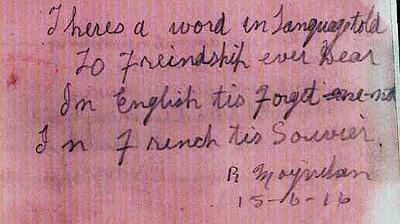 Theres a word in Language told
To Freindship ever Dear
In English tis Forget-me-not
In French tis Souvier.
R Moynihan
15-6-16